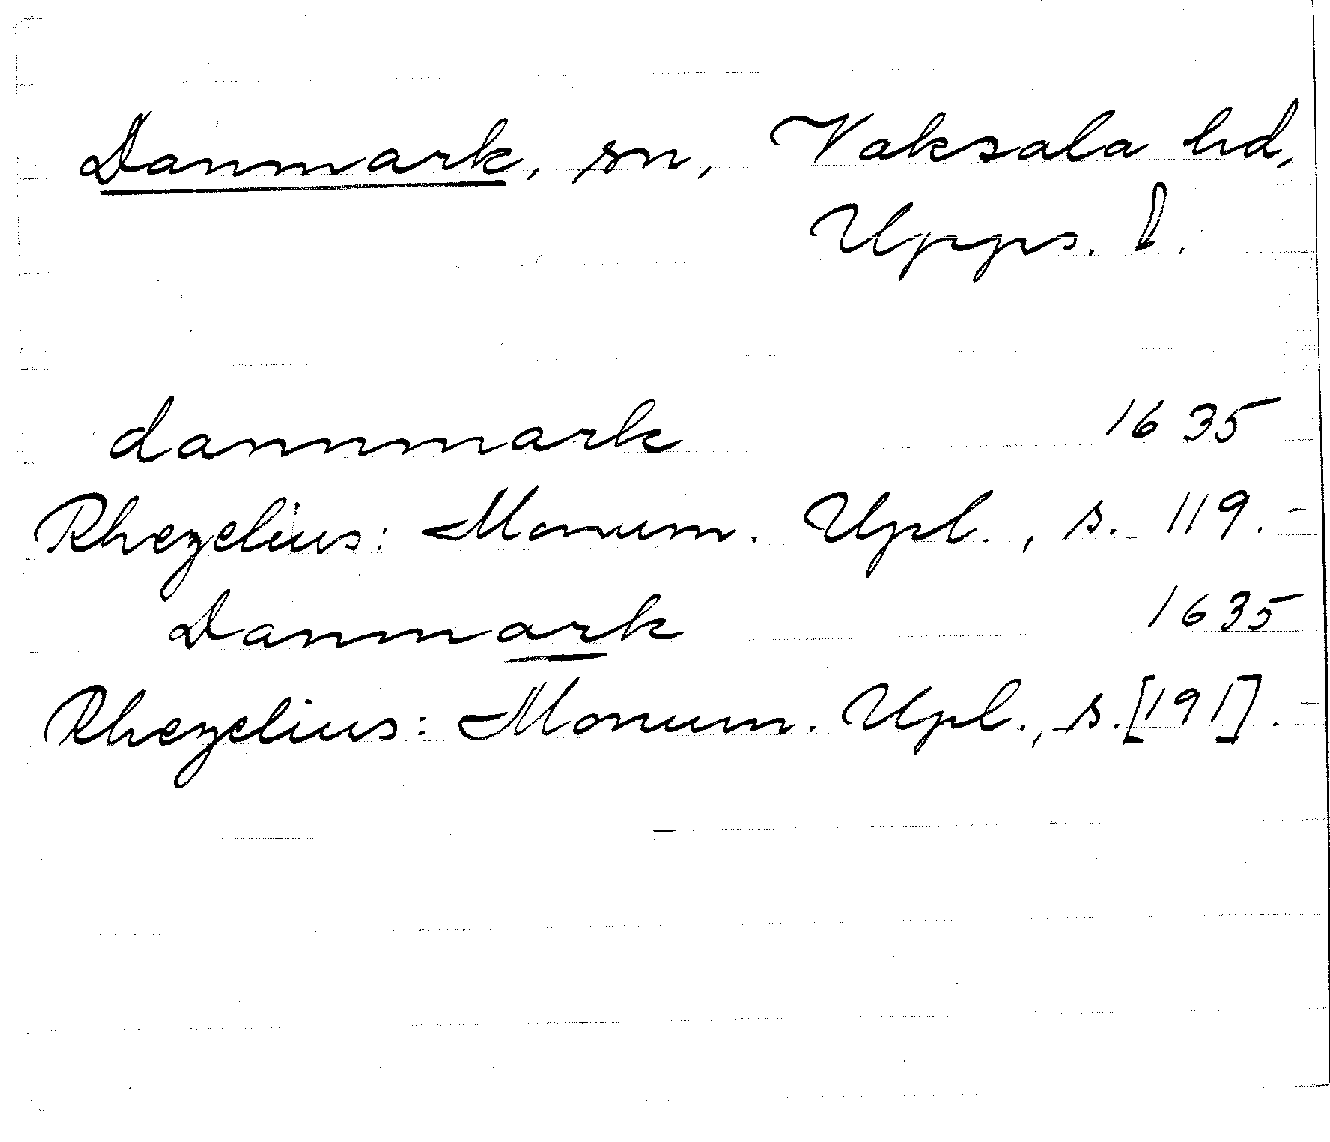 Danmark, sn, Vaksala hd,
Upps. l.
dannmark 1635
Rhezelius: Monum. Upl., s. 119.-
Danmark 1635
Rhezelius: Monum. Upl., s. [191]. -